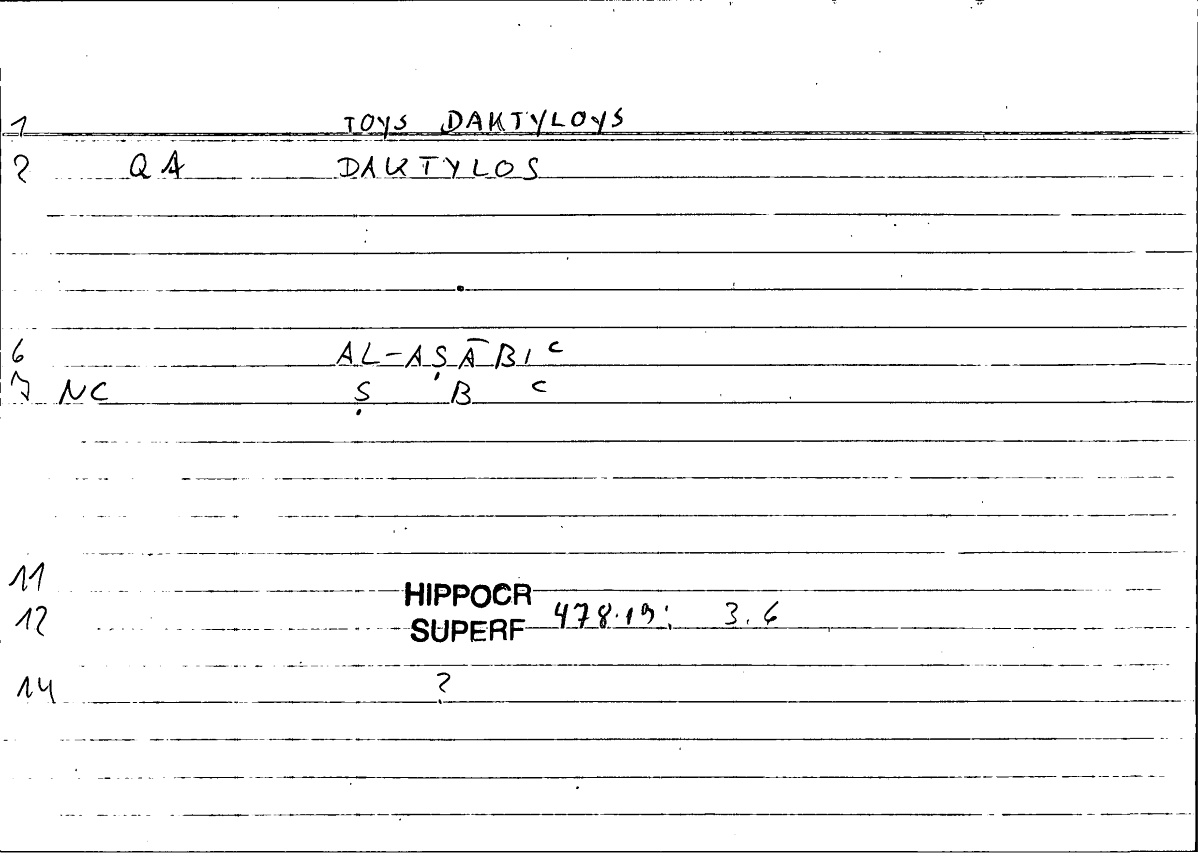 1 TOYS DAKTYLOYS
2 QA DAKTYLOS
6 AL-AṢĀBIᶜ
7 NC Ṣ B ᶜ
11 HIPPOCR
12 SUPERF 478.19: 3.6
14 ?